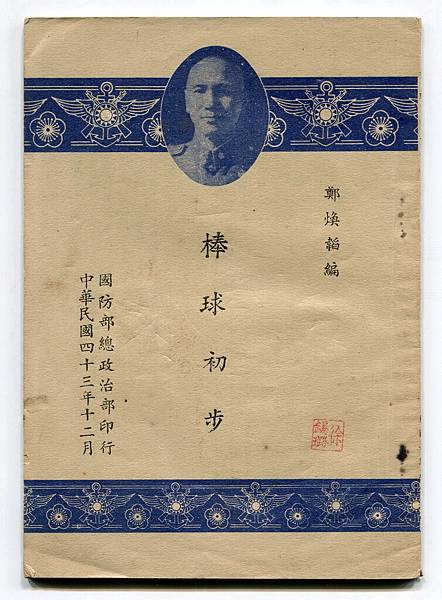 鄭煥韜編
棒球初步
國防部總政治部印行
中華民國四十三年十二月